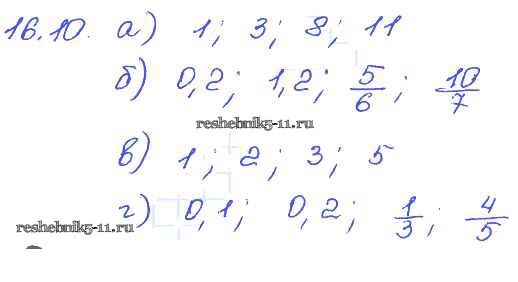 16.10. а) 1; 3; 8; 11
б) 0,2; 1,2; 5/6; 10/7
reshebnik5-11.ru
в) 1; 2; 3; 5
г) 0,1; 0,2; 1/3; 4/5
reshebnik5-11.ru